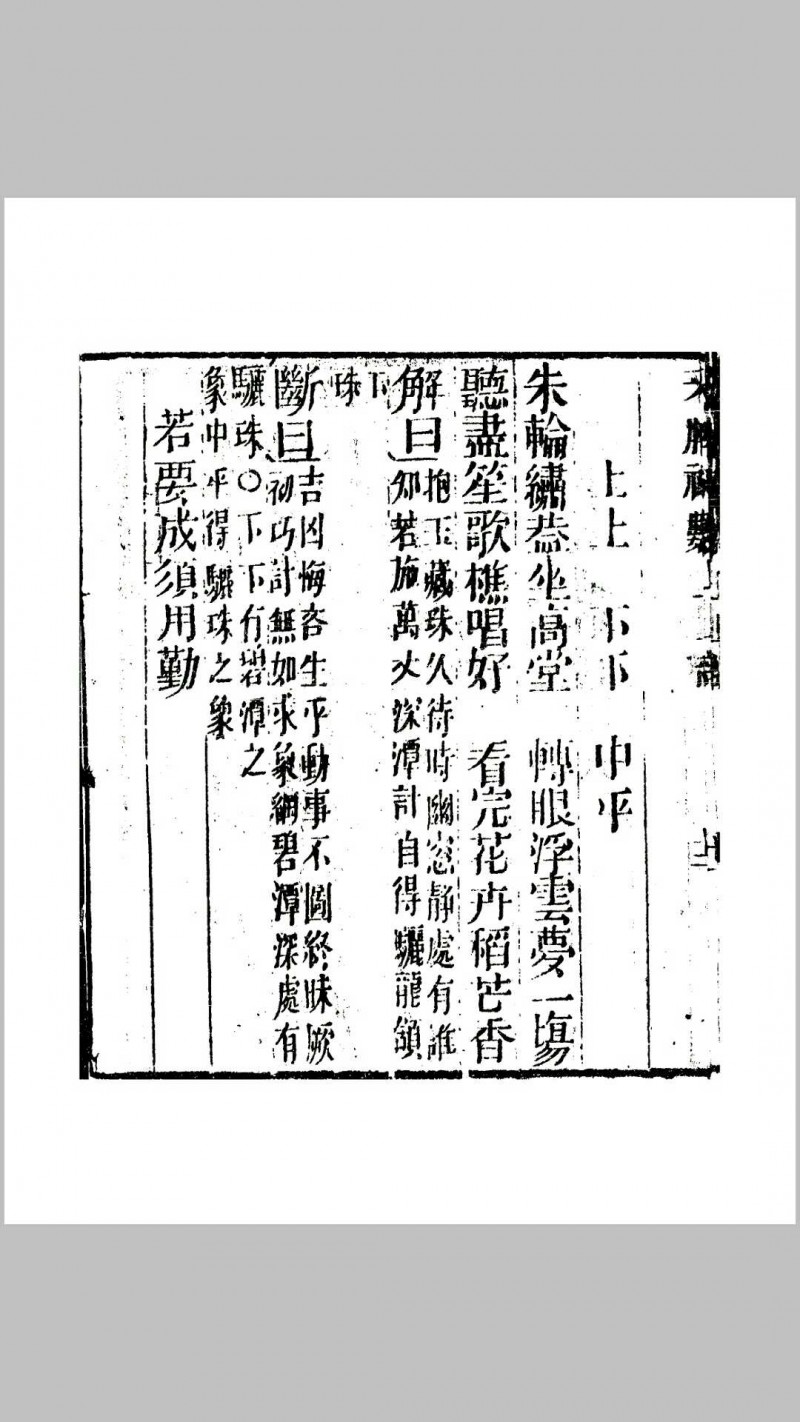 牙牌神數
上上 下下 中平
朱輪繡葢坐高堂 轉眼浮雲夢一塲
聽盡笙歌樵唱好 看完花卉稻芒香
解曰
抱玉藏珠久待時幽窓静處有誰
知若施萬火深潭計自得驪龍頷
下
珠
斷曰
吉凶悔吝生乎動事不圖終昧厥
初巧計無如求象網碧潭深處有
驪珠○下下有碧潭之
象中平得驪珠之象
若要成須用勤